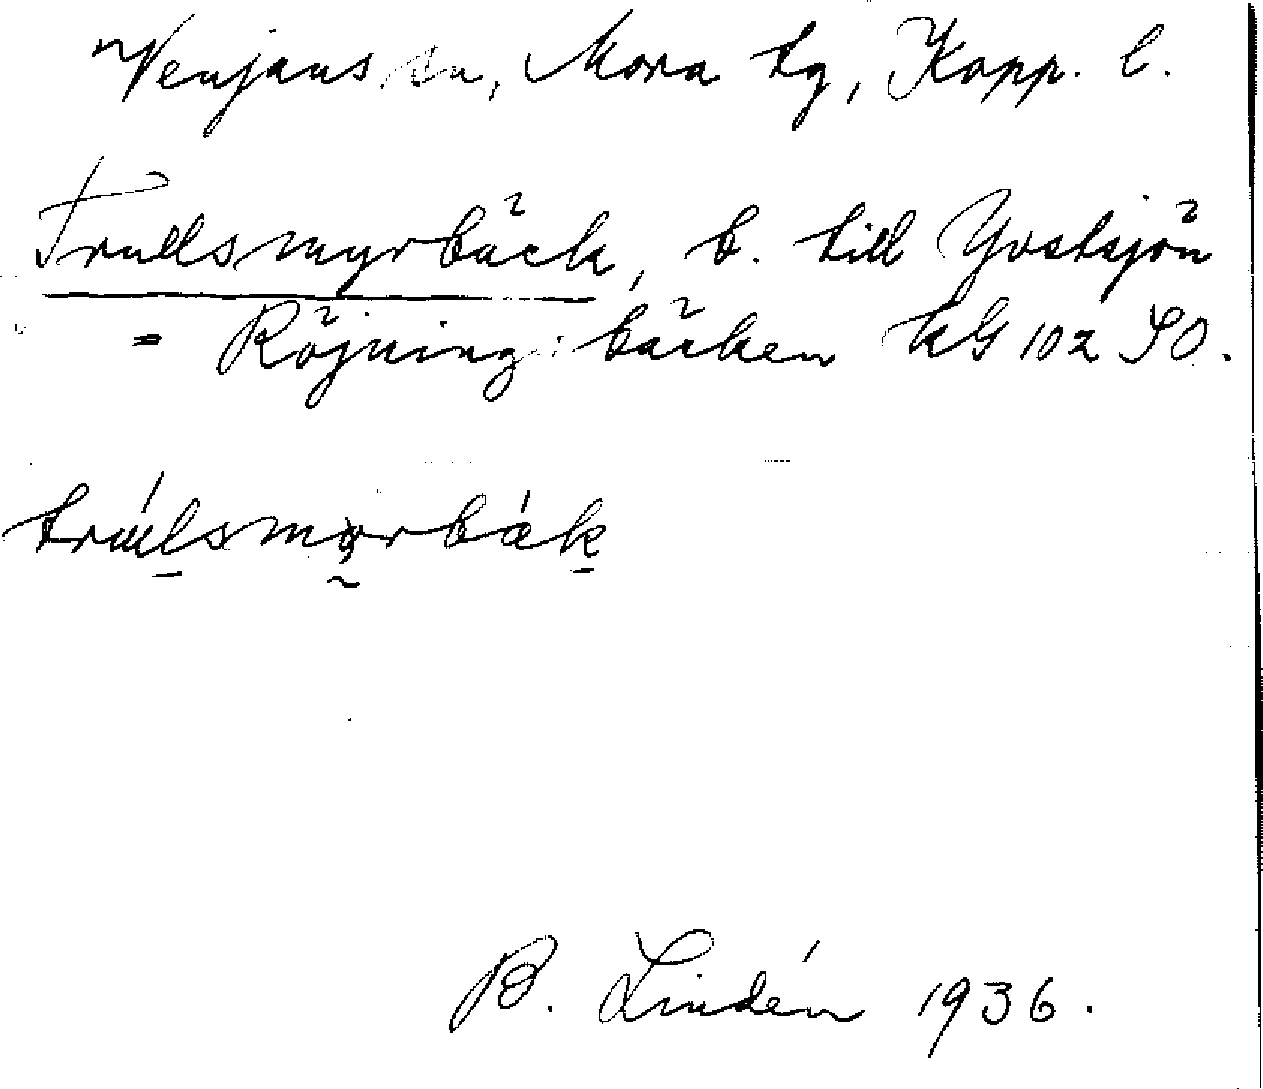 Venjans sn, Mora tg, Kopp. l.
Trullsmyrbäck, b. till Yvstsjön
= Röjningsbäcken kG 102 SO.
B. Lindén 1936.